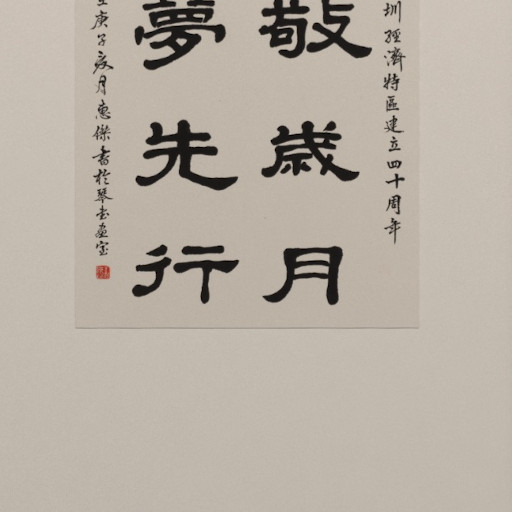 圳經濟特區建立四十周年
敬歲月
夢先行
庚子夏月惠傑書於琴書畫室